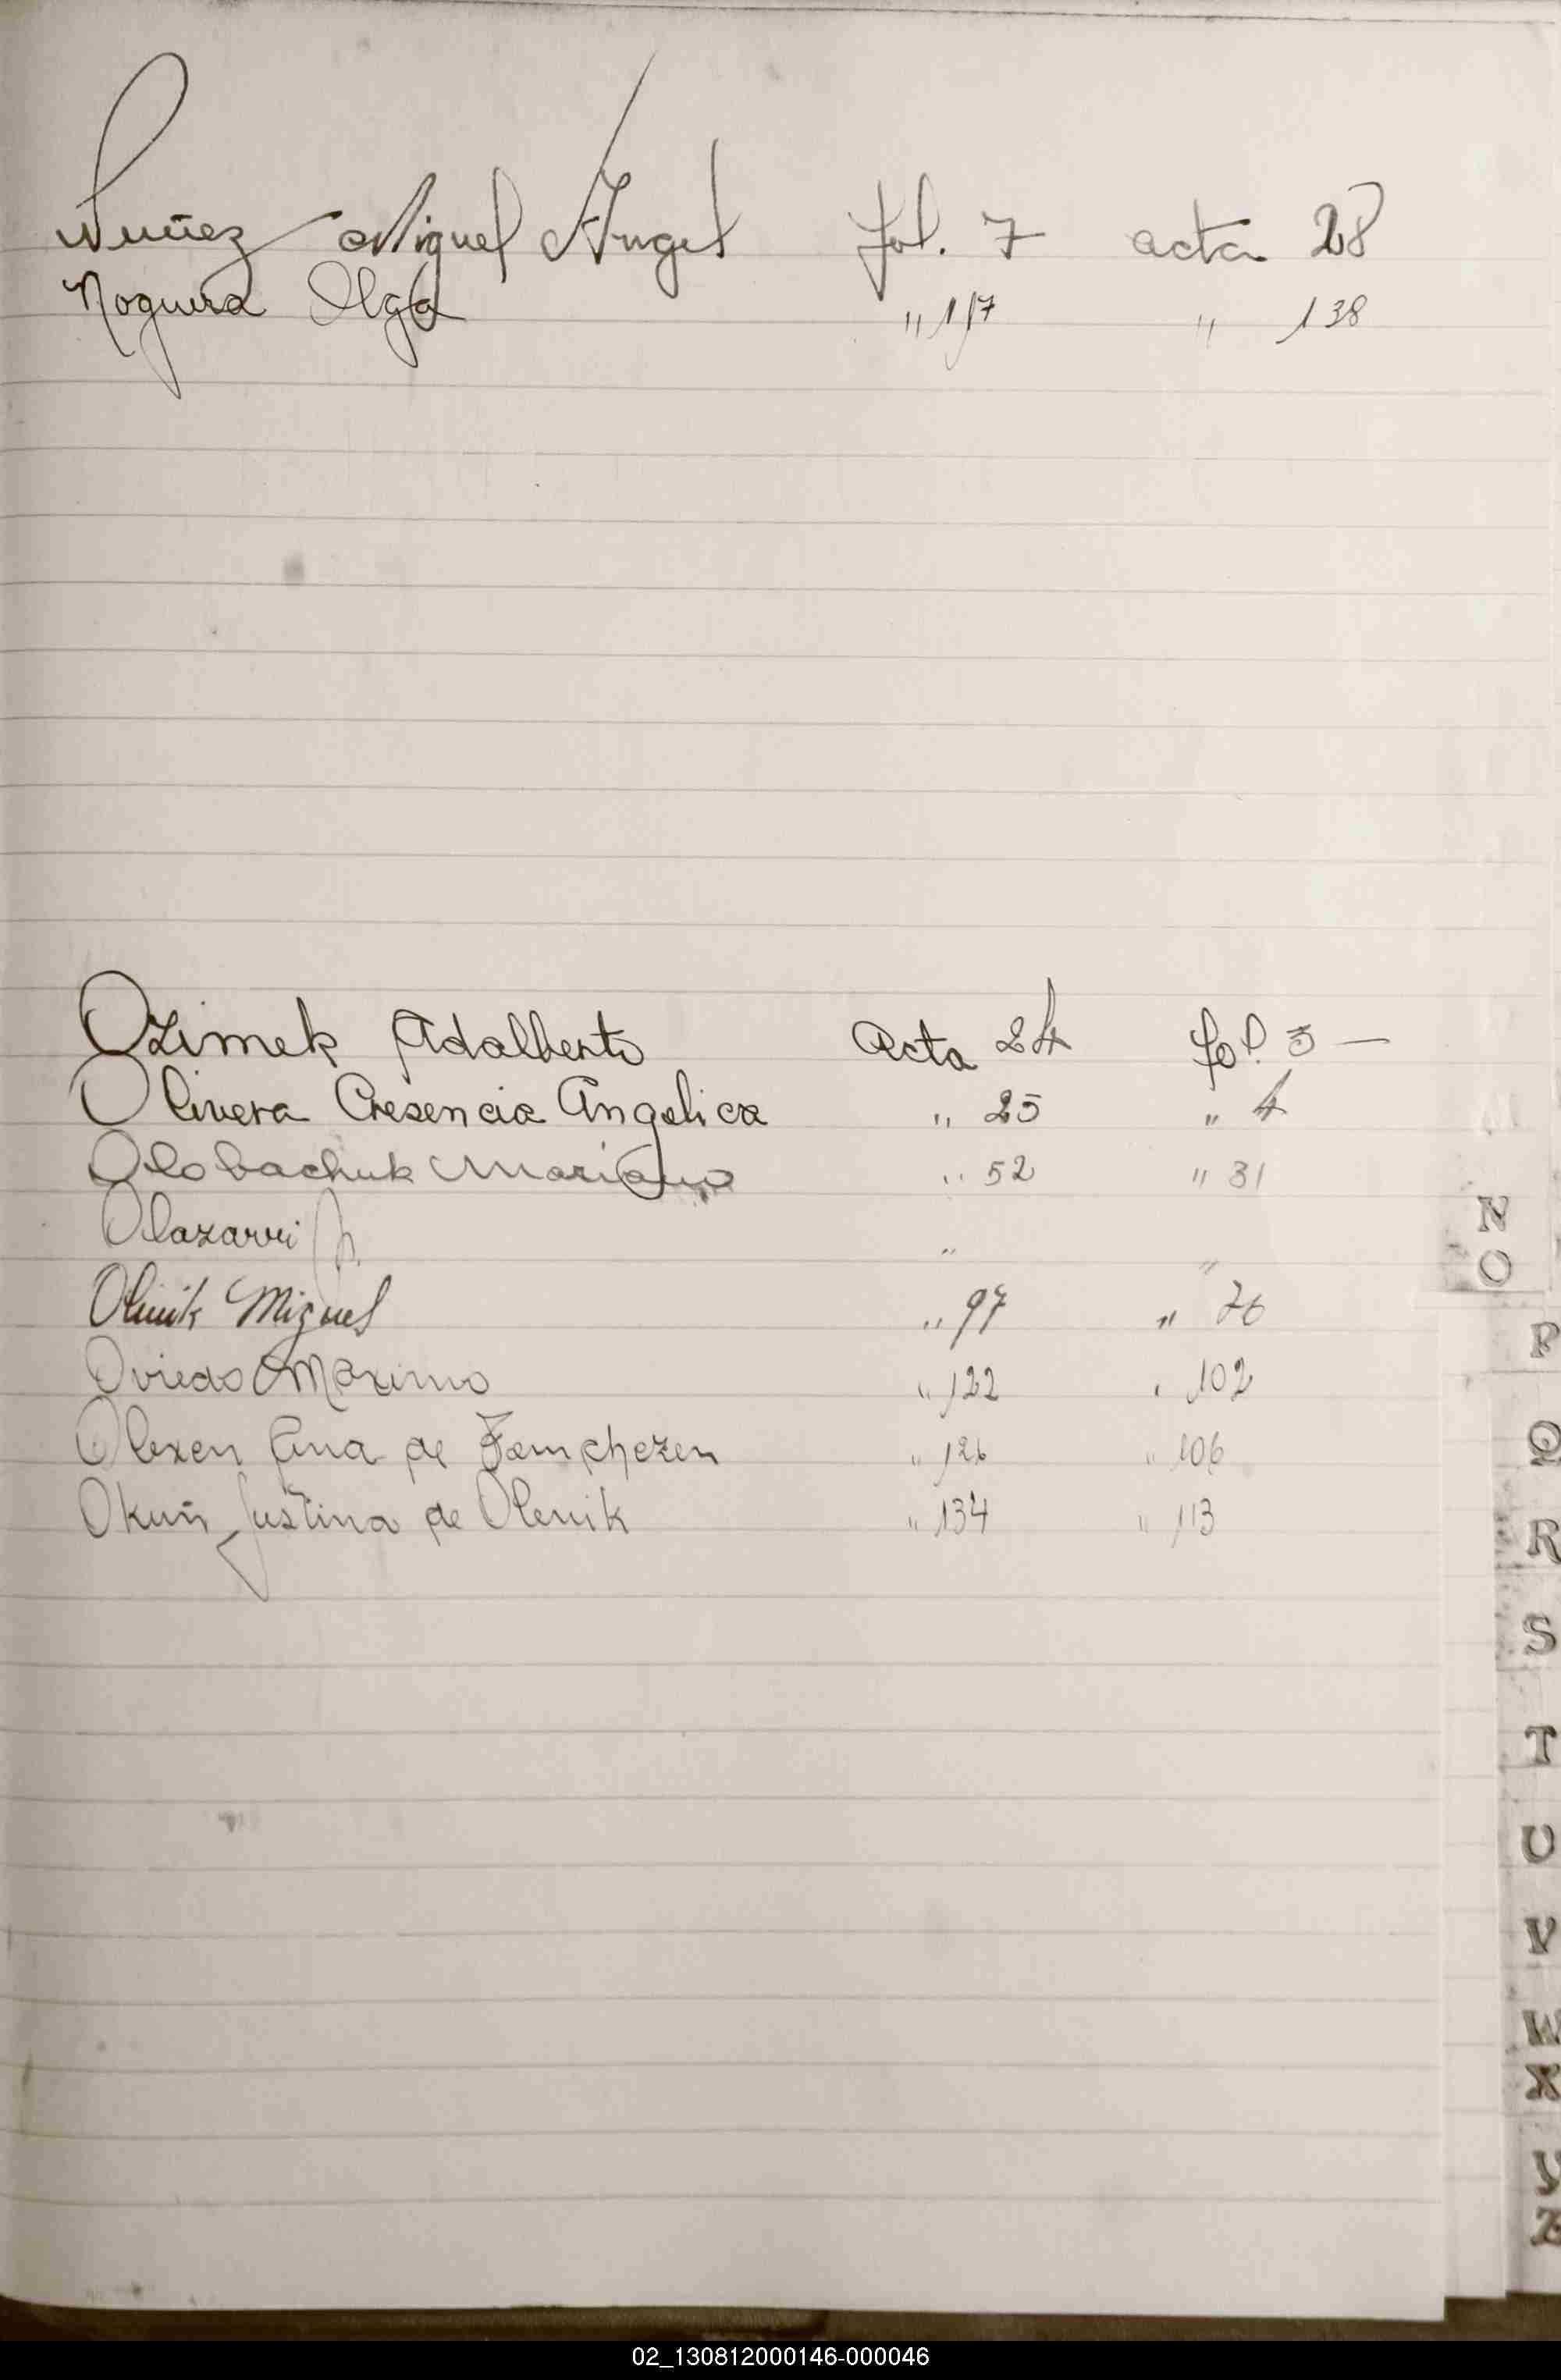 Nuñez Miguel Angel fol. 7 acta 28
Noguera Olga " 117 " 138
Ozimek Adalberto Acta 24 fol. 3 —
Olivera Cresencia Angelica " 25 " 4
Olobachuk Mariano " 52 " 31
Olazarri " "
Olinik Miguel " 97 " 76
Oviedo Maximo " 122 " 102
Olexen Ana de " 126 " 106
Okuñ Justina de Olenik " 134 " 113
N
O
P
Q
R
S
T
U
V
W
X
Y
Z
02_130812000146-000046